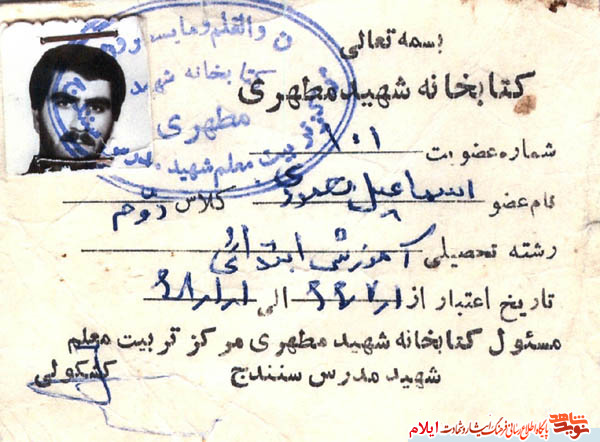 بسمه تعالی
کتابخانه شهید مطهری
شماره عضویت ۱۰۱
نام عضو اسماعیل کلاس دوم
رشته تحصیلی آموزش ابتدائی
تاریخ اعتبار از الی
مسئول کتابخانه شهید مطهری مرکز تربیت معلم
شهید مدرس سنندج
کشکولی
ن والقلم وما یسطرون
کتابخانه شهید
مطهری
تربیت معلم شهید مدرس
نوید شاهد
پایگاه اطلاع رسانی فرهنگ ایثار و شهادت ایلام